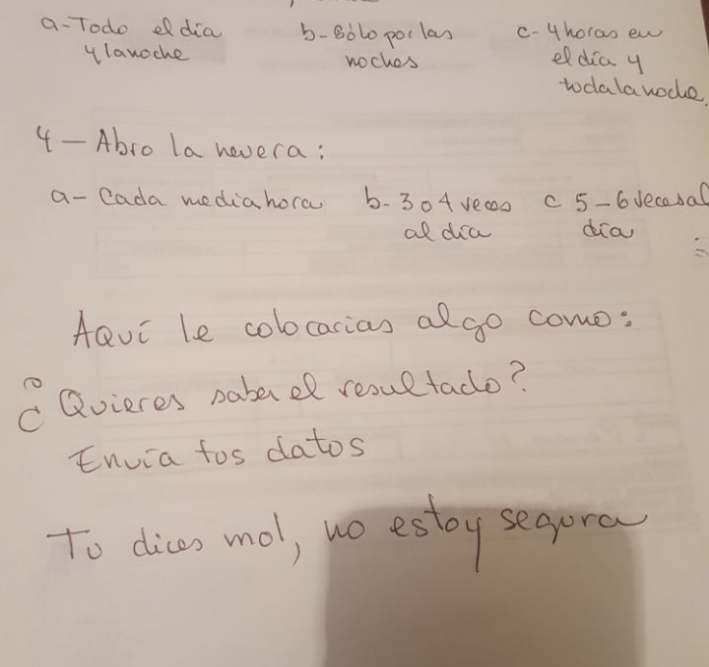 a-Todo el día b-Sólo por las c- 4 horas en
y la noche noches el día y
toda la noche.
4 - Abro la nevera:
a- Cada media hora b- 3 o 4 veces c 5-6 veces al
al día día
Aquí le colocarias algo como:
¿Quieres saber el resultado?
Envía tus datos
Tu dices mol, no estoy segura